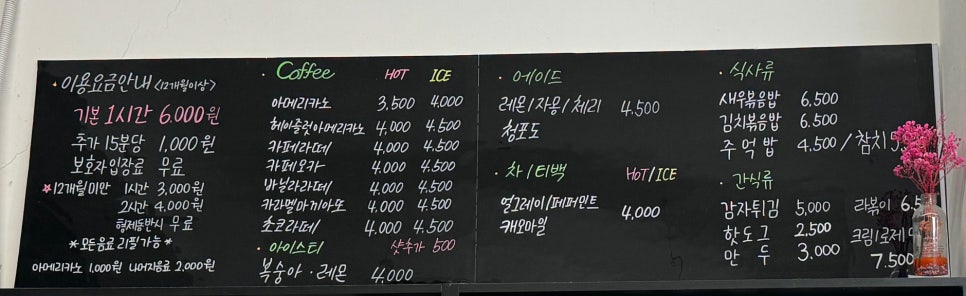 이용요금안내 <12개월이상>
기본 1시간 6,000원
추가 15분당 1,000원
보호자입장료 무료
★12개월미만 1시간 3,000원
2시간 4,000원
형제동반시 무료
*모든음료 리필가능*
아메리카노 1,000원 나머지음료 2,000원
· Coffee HOT ICE
아메리카노 3,500 4,000
헤이즐럿아메리카노 4,000 4,500
카페라떼 4,000 4,500
카페모카 4,000 4,500
바닐라라떼 4,000 4,500
카라멜마끼아또 4,000 4,500
초코라떼 4,000 4,500
· 아이스티 샷추가 500
복숭아 · 레몬 4,000
· 에이드
레몬/자몽/체리 4,500
청포도
· 차/티백 HOT/ICE
얼그레이/페퍼민트 4,000
캐모마일
· 식사류
새우볶음밥 6,500
김치볶음밥 6,500
주먹밥 4,500 / 참치
· 간식류
감자튀김 5,000 라볶이
핫도그 2,500 크림/로제
만두 3,000 7,500